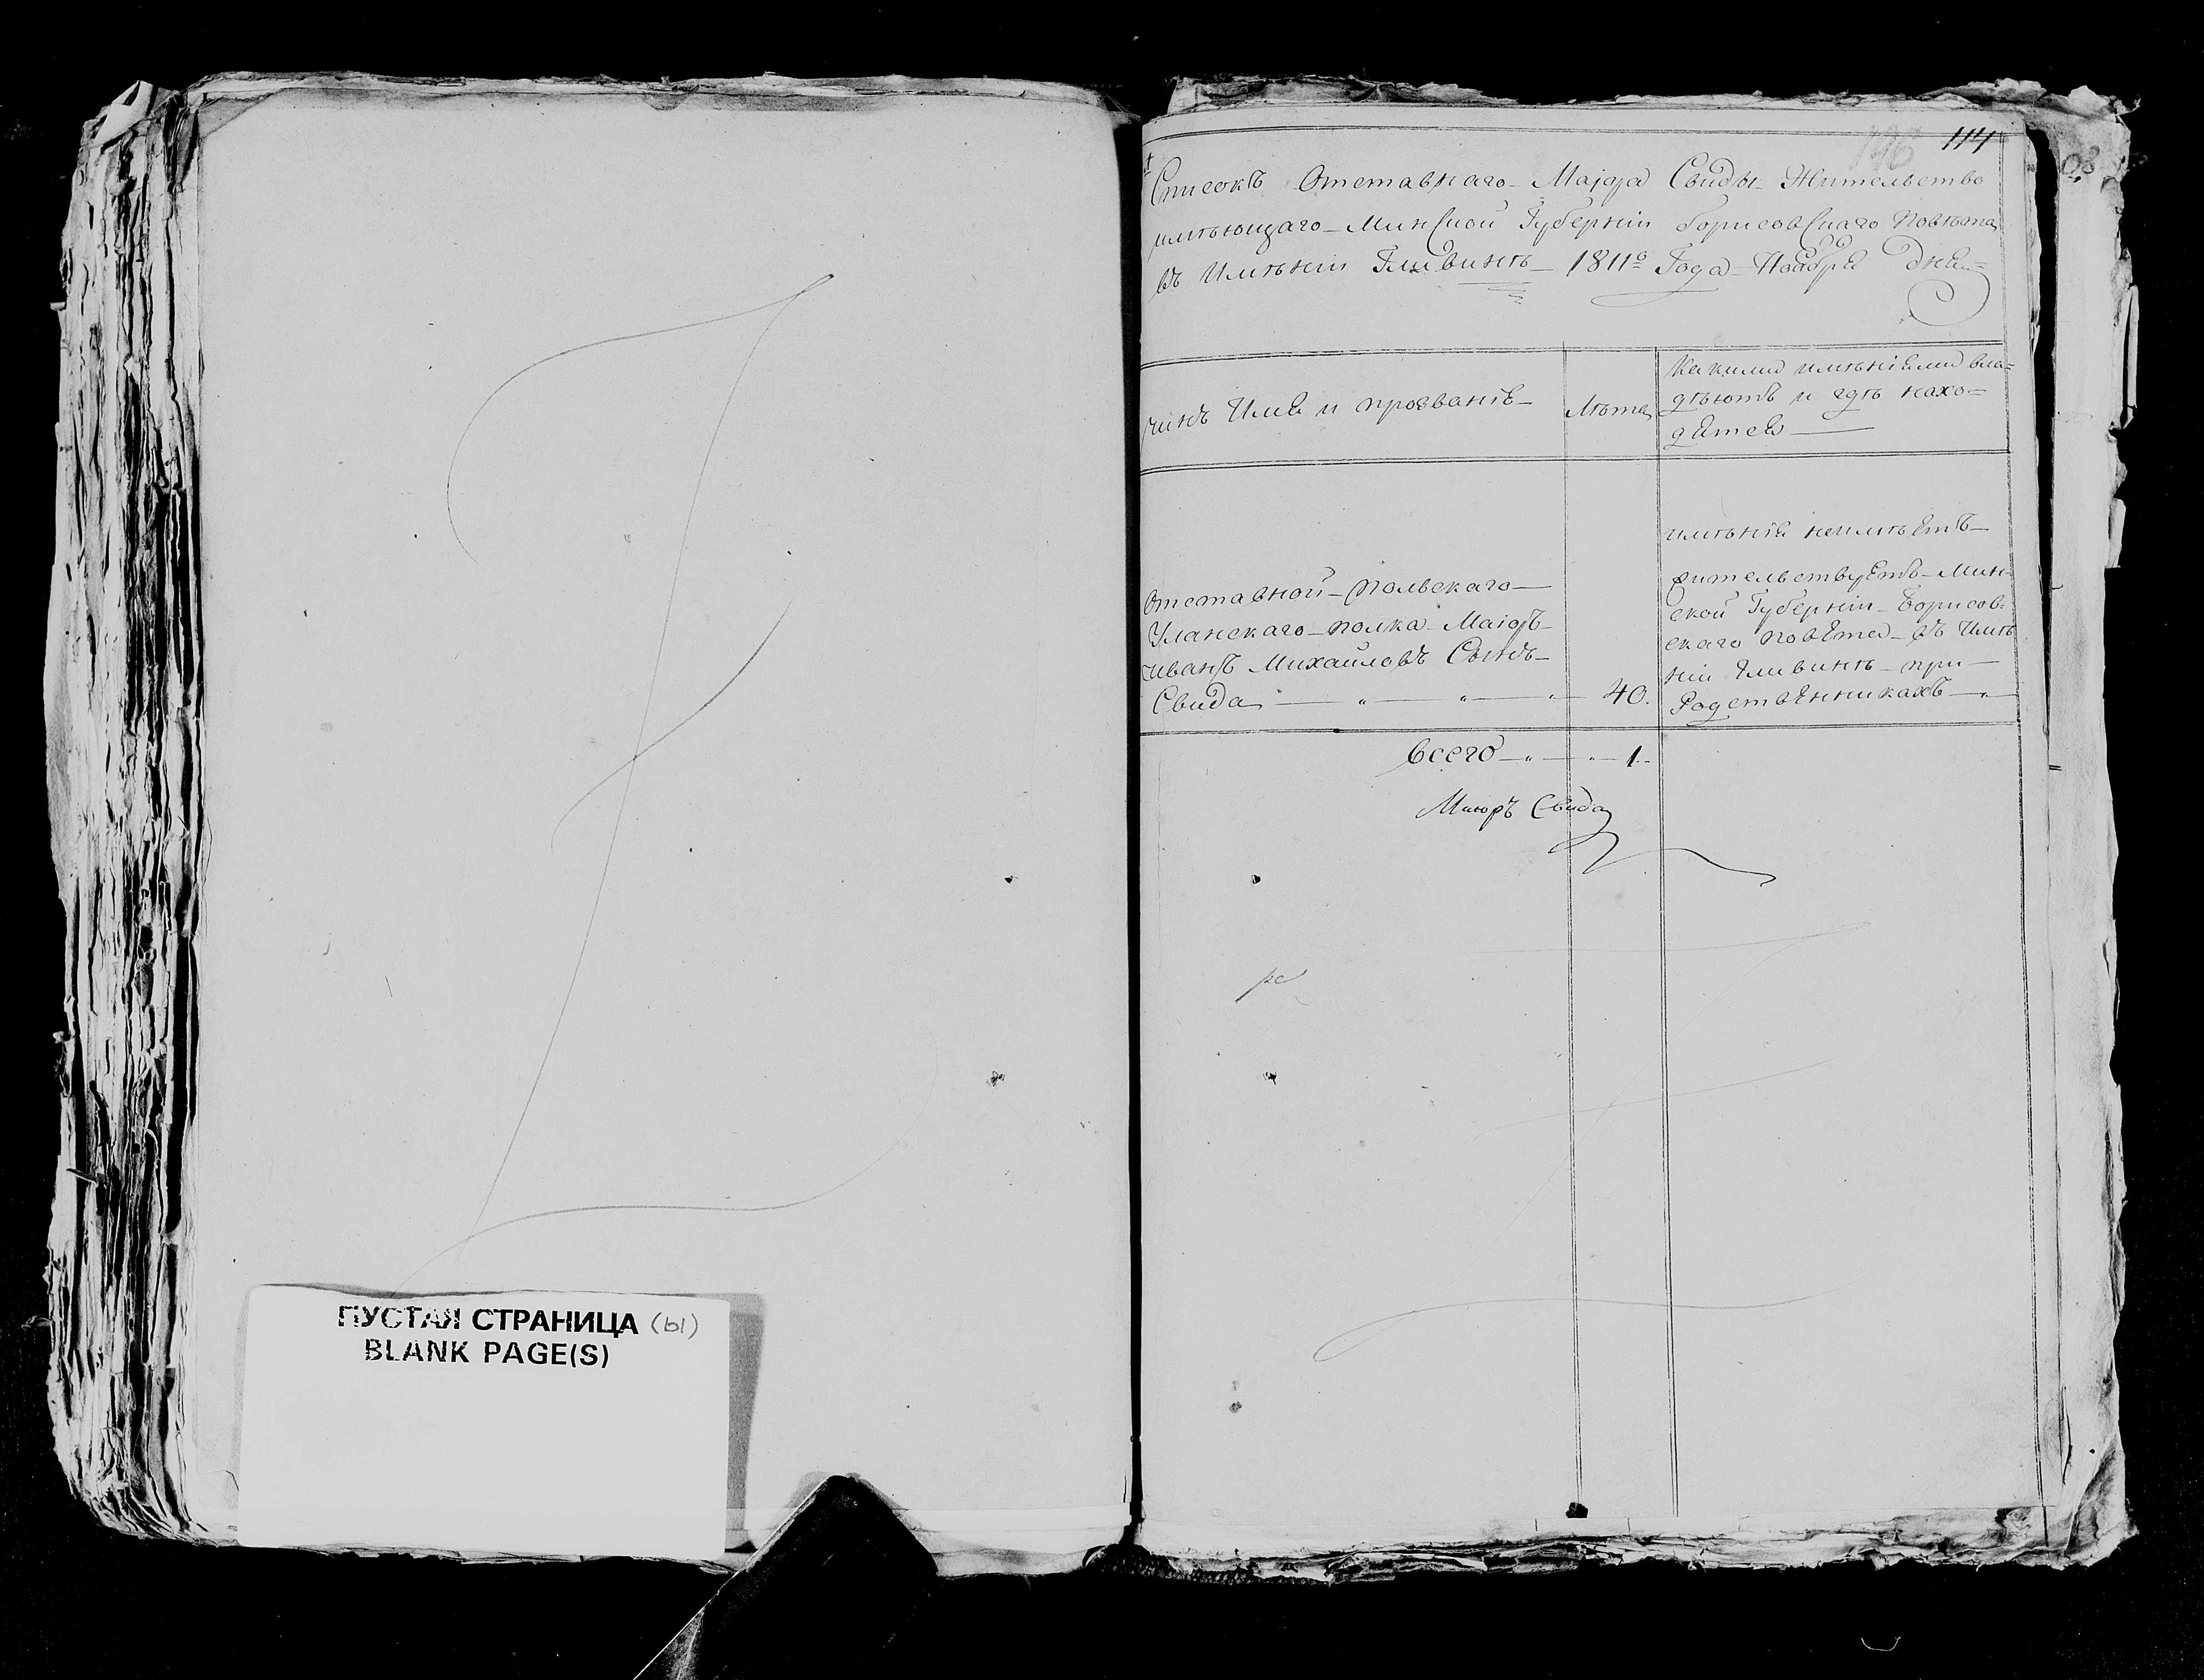 ПУСТАЯ СТРАНИЦА (ы)
BLANK PAGE(S)
114
Списокъ Отставнаго Маіора Свиды Жительство
имѣющаго Минской Губерніи Борисовскаго Повѣта
въ Имѣніи Гливинѣ 1811го Года Ноября дня
чинъ Имя и прозваніе
Лѣта
Какими имѣніями вла=
дѣютъ и гдѣ нахо=
дятся
Отставной польскаго
Уланскаго полка Маіоръ
иванъ Михайловъ Сынъ
Свида
40.
имѣнія неимѣетъ
жительствуетъ Мин-
ской Губерніи Борисов-
скаго повета въ Имѣ
ніи Гливинѣ при
Родственникахъ
всего 1.
Маиоръ Свида